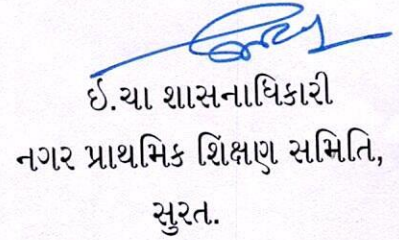 ઇ.ચા શાસનાધિકારી
નગર પ્રાથમિક શિક્ષણ સમિતિ,
સુરત.